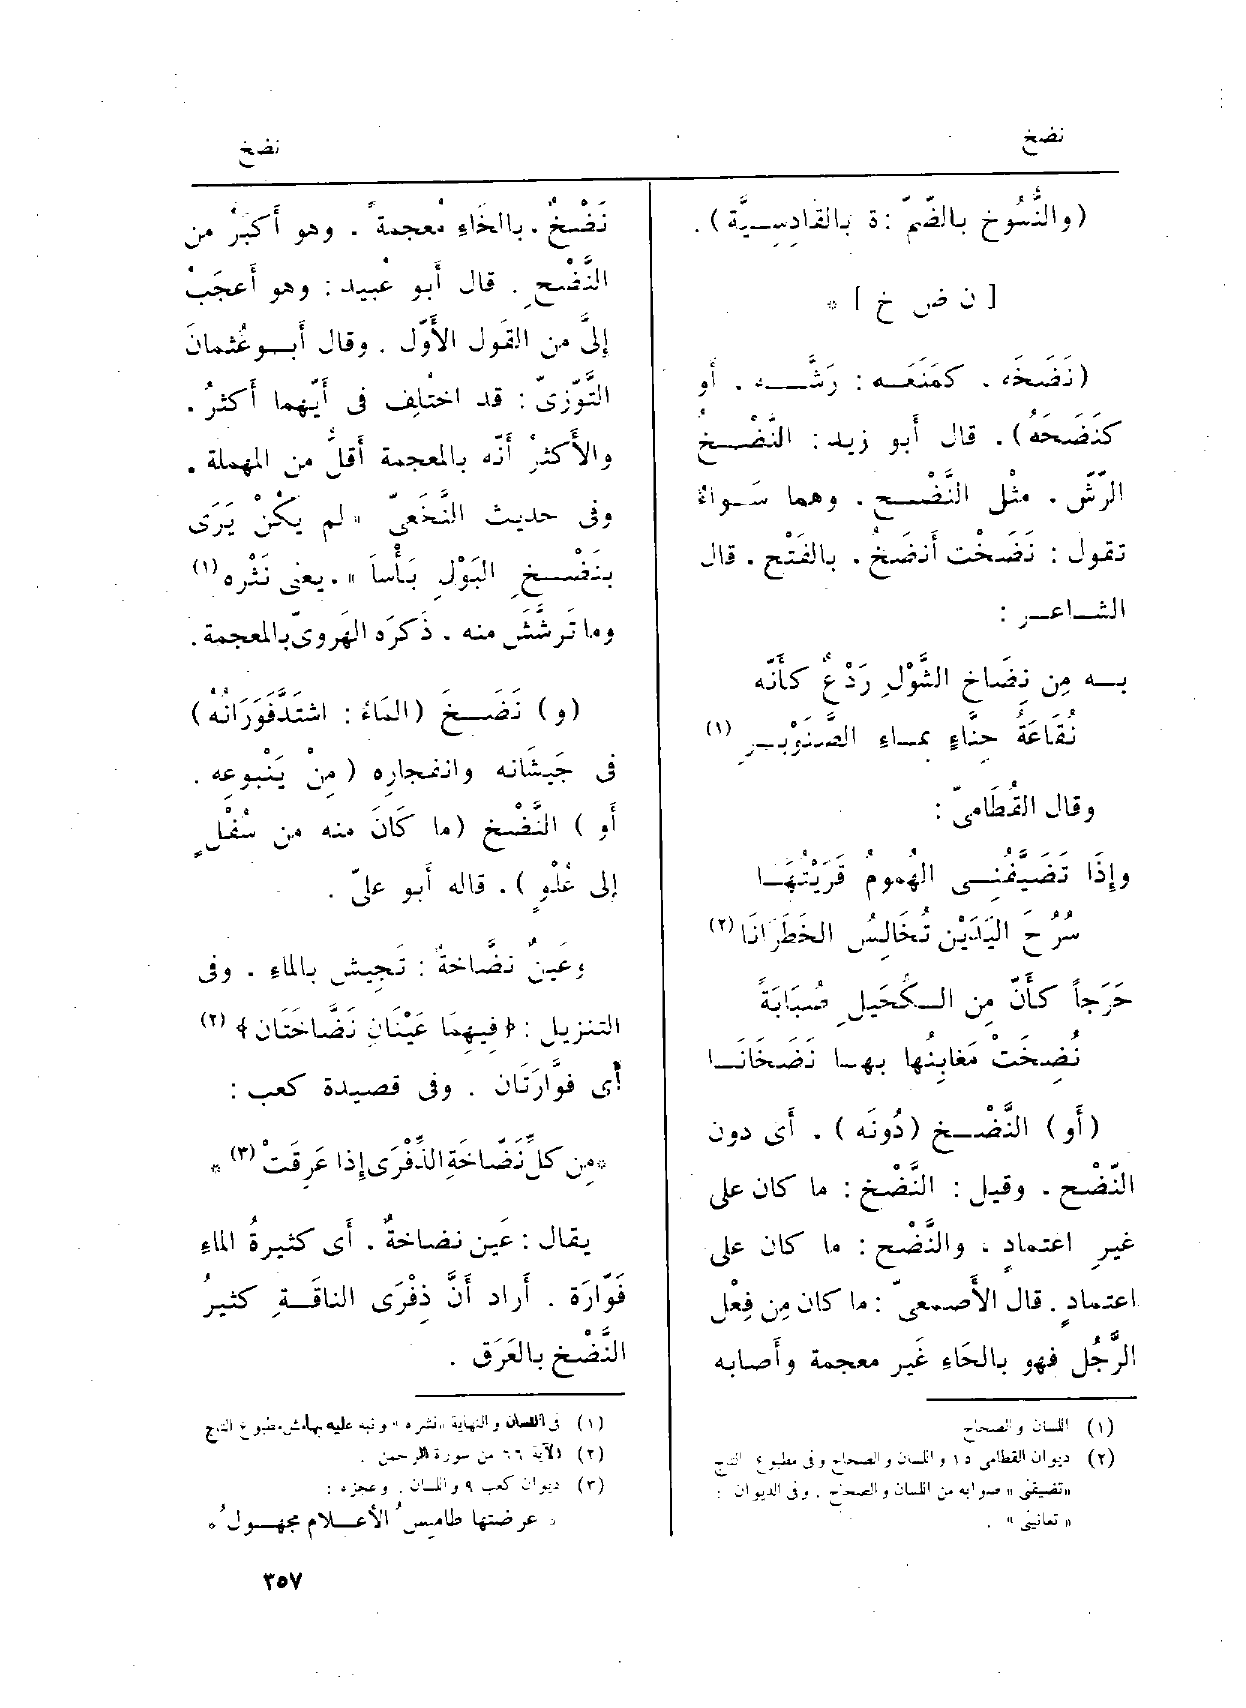 نضخ
نضخ
(والنُّسُوخ بالضّمّ : ة بالقَادِسِيَّة) .
[ ن ض خ ] *
(نَضَخَه ، كمَنَعَه : رَشَّه ، أو
كنَضَحَهُ) . قال أبو زيد : النَّضْخُ
الرّشّ ، مثل النَّضْح ، وهما سَواءٌ
تقول : نَضَخْت أنضَخُ ، بالفَتْح . قال
الشاعر :
به مِن نِضَاخِ الشَّوْلِ رَدْعٌ كأنّه
نُقَاعَةُ حِنَّاءٍ بمَاءِ الصَّنَوْبَرِ (١)
وقال القُطَامىّ :
وإِذَا تَضَيَّفُنِى الهُمومُ قَرَيْتُهَا
سُرُحَ اليَدَيْن تُخَالِسُ الخَطَرَانَا (٢)
حَرَجاً كأَنّ مِن الكُحَيلِ صُبَابَةً
نُضِخَتْ مَغابِنُها بها نَضَخَانَا
(أو) النَّضْخ (دُونَه) ، أى دون
النّضْح . وقيل : النَّضْخ : ما كان على
غيرِ اعتمادٍ ، والنَّضْح : ما كان على
اعتمادٍ . قال الأَصمعىّ : ما كان مِن فِعْل
الرَّجُل فهو بالحَاءِ غَير معجمة وأصابه
(١) اللسان والصحاح
(٢) ديوان القطامى ١٥ واللسان والصحاح وفى مطبوع التاج
«تضيفنى» صوابه من اللسان والصحاح . وفى الديوان :
«تعانينى» .
نَضْخٌ ، بالخَاءِ مُعجمةً ، وهو أكبَرُ من
النَّضْحِ . قال أبو عُبيد : وهو أَعجَبُ
إلىَّ من القَول الأَوّل . وقال أبو عُثمانَ
التَّوَّزىّ : قد اختُلِف فى أَيّهما أكثرُ ،
والأَكثرُ أَنّه بالمعجمة أَقلُّ من المهملة .
وفى حديث النَّخَعىّ «لم يكُنْ يَرَى
بنَضْخِ البَوْلِ بَأْساً» . يعنى نَثْره (١)
وما تَرشَّشَ منه . ذَكرَه الهَروىّ بالمعجمة .
(و) نَضَخَ (المَاءُ : اشتَدَّ فَوَرَانُه)
فى جَيشَانه وانفجارِه (مِنْ يَنْبوعِه .
أو) النَّضْخ (ما كَانَ منه من سُفْلٍ
إلى عُلْوٍ) ، قاله أَبو علىّ .
وعَينٌ نضَّاخةٌ : تَجِيش بالماءِ . وفى
التنزيل : ﴿فِيهِمَا عَيْنَانِ نَضَّاخَتَان﴾ (٢)
أى فوَّارَتَان . وفى قصيدة كعب :
* مِن كلِّ نَضّاخَةِ الذِّفْرَى إذا عَرِقَتْ (٣) *
يقال : عَين نضاخةٌ ، أى كثيرةُ الماءِ
فَوّارَة . أراد أَنَّ ذِفْرَى الناقَةِ كثيرُ
النَّضْخ بالعَرَق .
(١) فى اللسان والنهاية «نشره» ونبه عليه بهامش مطبوع التاج
(٢) الآية ٦٦ من سورة الرحمن .
(٣) ديوان كعب ٩ واللسان . وعجزه :
* عرضتها طامِسُ الأعلام مجهولُ *
٣٥٧